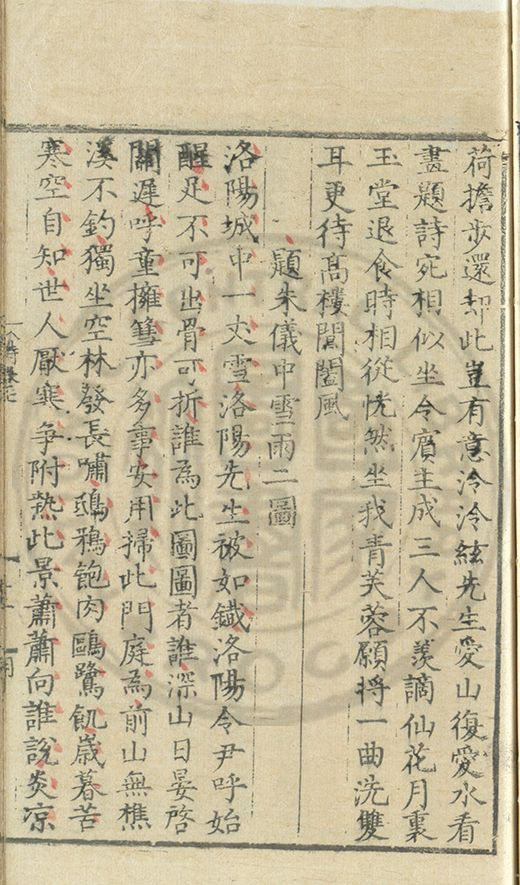 荷擔步還却此豈有意泠泠絃先生愛山復愛水看
畫題詩宛相似坐令賓主成三人不羨謫仙花月裏
玉堂退食時相從恍然坐我青芙蓉願將一曲洗雙
耳更待高樓閶闔風
題朱儀中雪雨二圖
洛陽城中一丈雪洛陽先生被如鐵洛陽令尹呼始
醒足不可出骨可折誰為此圖圖者誰深山日晏啓
關遲呼童擁篲亦多事安用掃此門庭為前山無樵
溪不釣獨坐空林發長嘯鴟鴉飽肉鷗鷺飢歲暮苦
寒空自知世人厭寒爭附熱此景蕭蕭向誰說炎凉